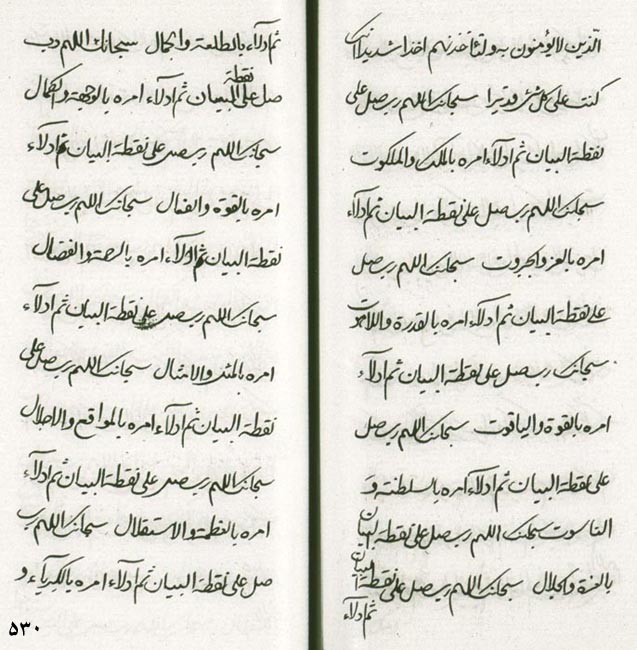 الذین لایؤمنون به ولتأخذنهم اخذا شدیدا انک
کنت علی کل شئ قدیرا سبحانک اللهم رب صل علی
نقطة البیان ثم ادلاء امره بالملک والملکوت
سبحانک اللهم رب صل علی نقطة البیان ثم ادلاء
امره بالعز والجبروت سبحانک اللهم رب صل
علی نقطة البیان ثم ادلاء امره بالقدرة واللاهوت
سبحانک رب صل علی نقطة البیان ثم ادلاء
امره بالقوة والیاقوت سبحانک اللهم رب صل
علی نقطة البیان ثم ادلاء امره بالسلطنة و
الناسوت سبحانک اللهم رب صل علی نقطة البیان
بالعزة والجلال سبحانک اللهم رب صل علی نقطة البیان
ثم ادلاء
ثم ادلاء بالطلعة والجمال سبحانک اللهم رب
صل علی نقطة البیان ثم ادلاء امره بالوجهة والکمال
سبحانک اللهم رب صل علی نقطة البیان ثم ادلاء
امره بالقوة والفعال سبحانک اللهم رب صل علی
نقطة البیان ثم ادلاء امره بالرحمة والفضال
سبحانک اللهم رب صل علی نقطة البیان ثم ادلاء
امره بالمثل والامثال سبحانک اللهم رب صل علی
نقطة البیان ثم ادلاء امره بالمواقع والاجلال
سبحانک اللهم رب صل علی نقطة البیان ثم ادلاء
امره بالعظمة والاستقلال سبحانک اللهم رب
صل علی نقطة البیان ثم ادلاء امره بالکبریاء و
۵۳۰